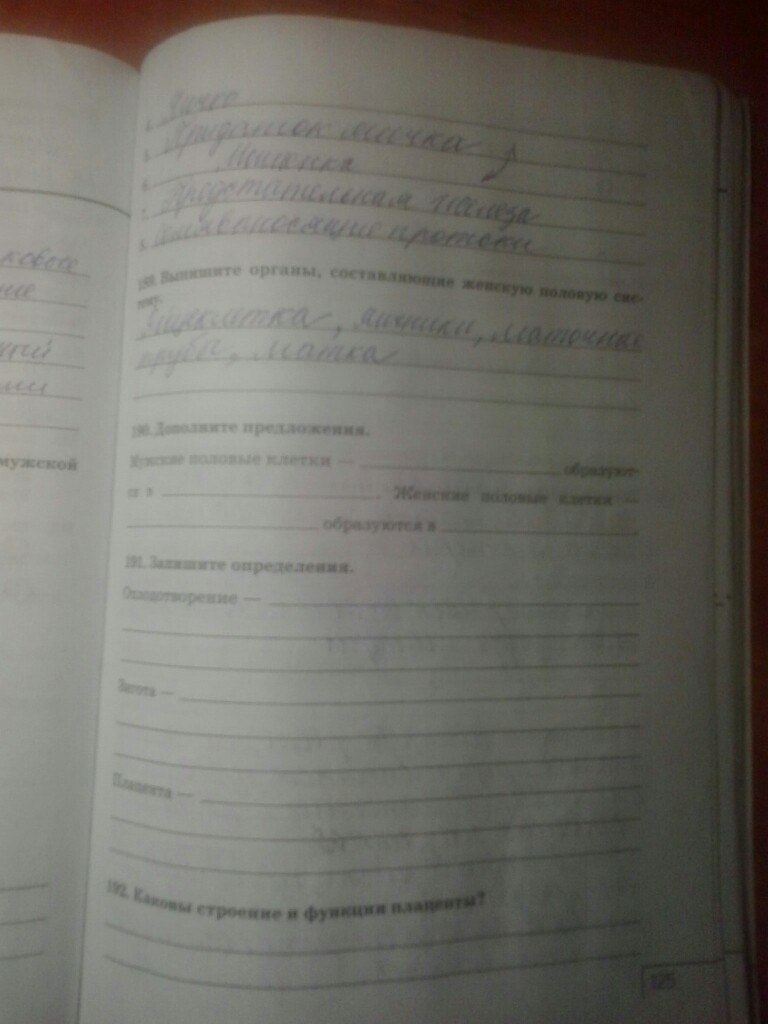 4. Яичко
5. Придаток яичка
6. Мошонка
7. Предстательная железа
8. Семявыносящие протоки
189. Выпишите органы, составляющие женскую половую сис-
тему.
Яйцеклетка, яичники, маточные
трубы, матка
190. Дополните предложения.
Мужские половые клетки — образуют-
ся в . Женские половые клетки —
образуются в
191. Запишите определения.
Оплодотворение —
Зигота —
Плацента —
192. Каковы строение и функции плаценты?
125
ковые
ние
ми
мужской